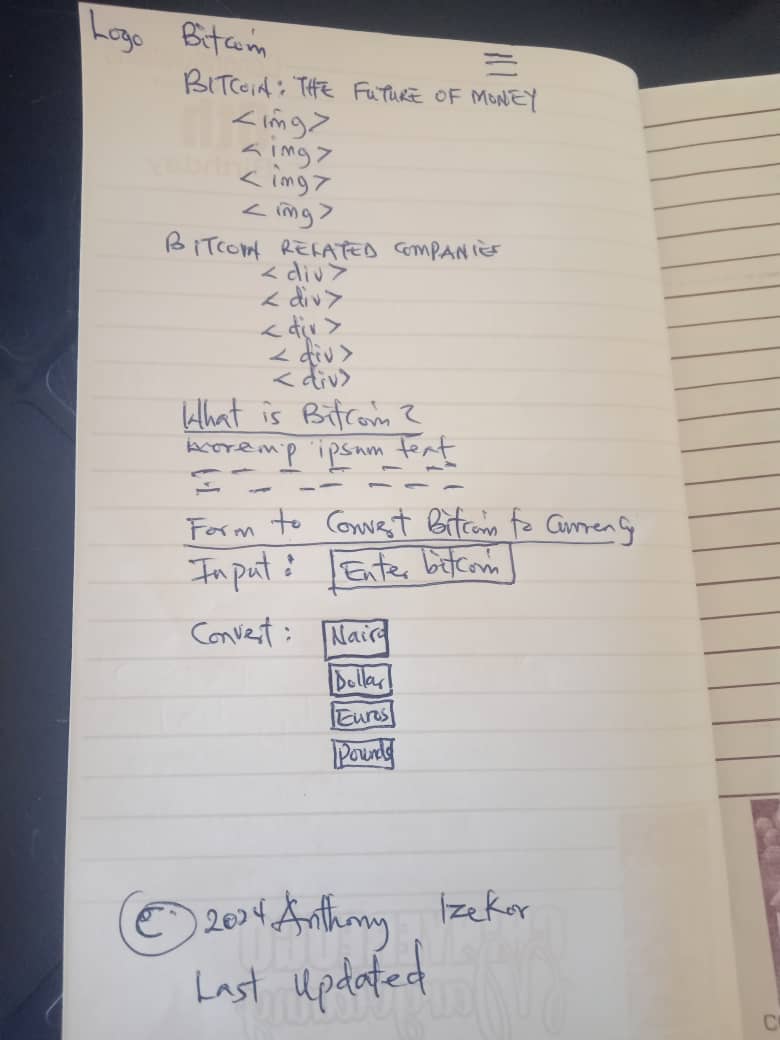 Logo Bitcoin
BITCOIN: THE FUTURE OF MONEY
<img>
<img>
<img>
<img>
BITCOIN RELATED COMPANIES
<div>
<div>
<div>
<div>
<div>
What is Bitcoin?
ipsum text
Form to Convert Bitcoin to Currency
Input: Enter bitcoin
Convert: Naira
Dollar
Euros
Pounds
© 2024 Anthony Izekor
Last Updated